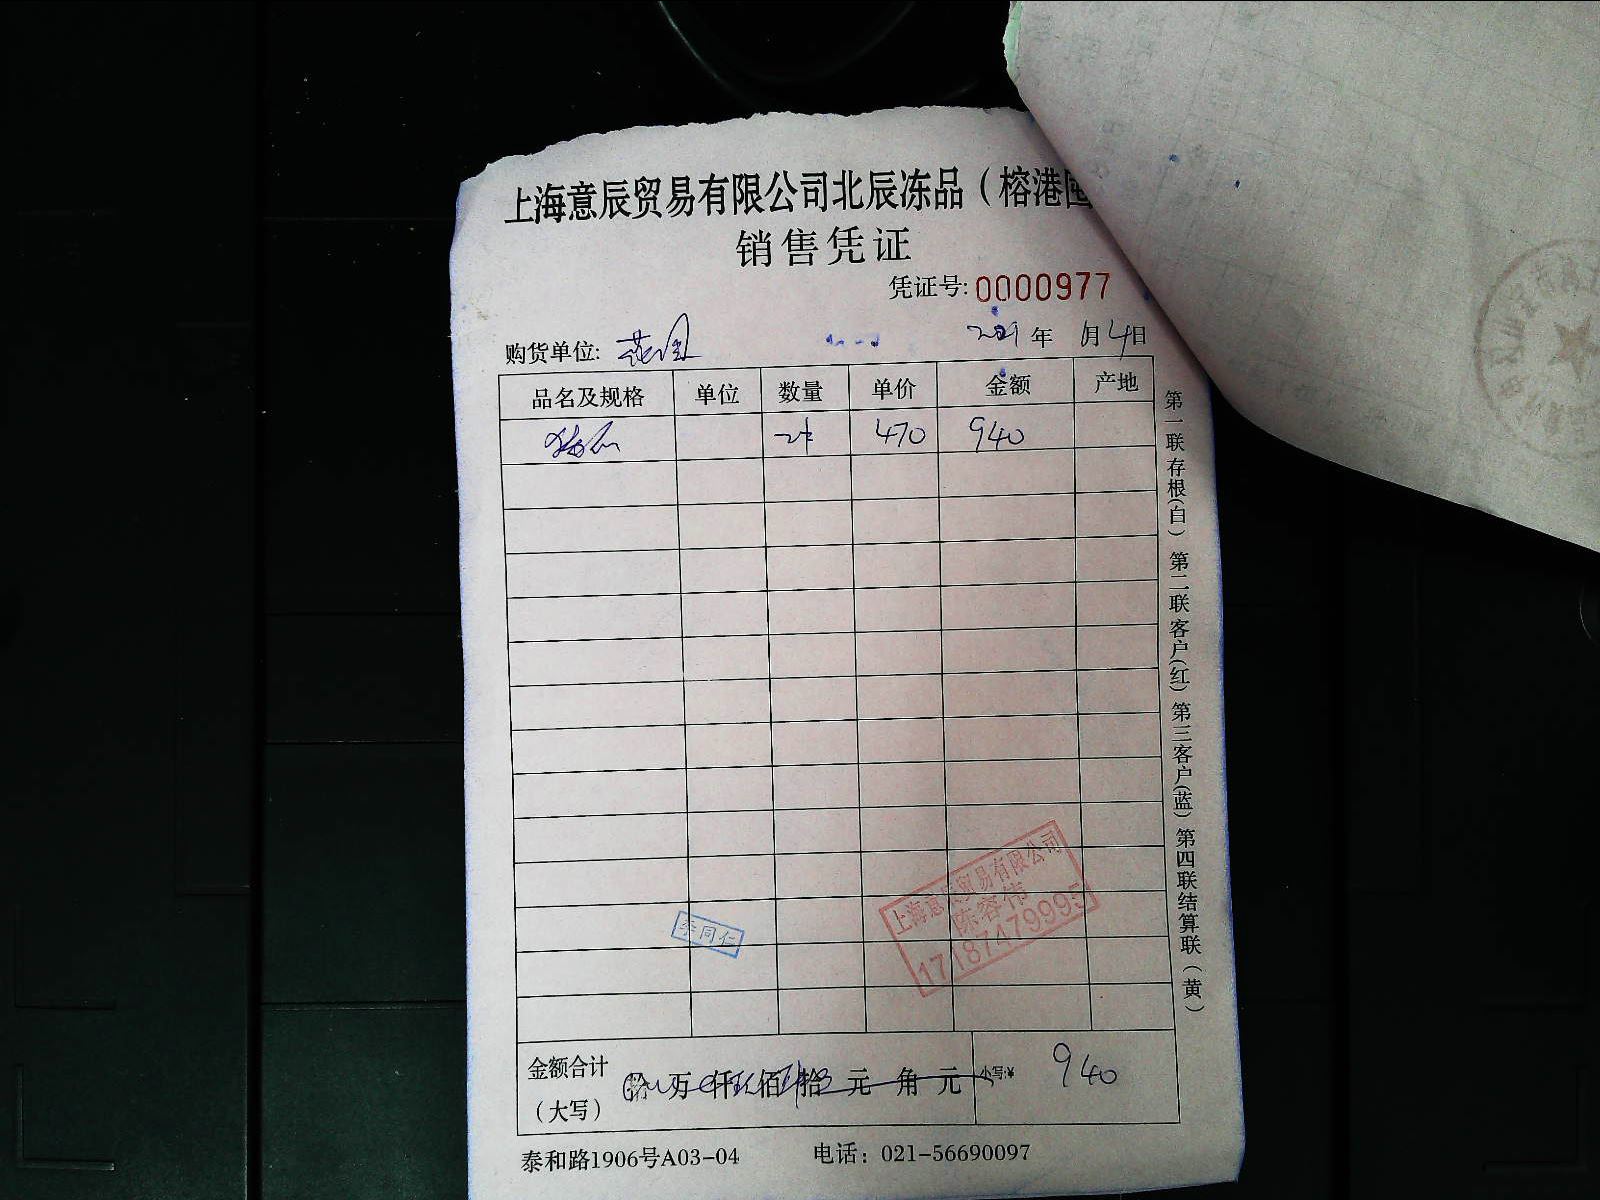 上海意辰贸易有限公司北辰冻品（榕港
销售凭证
凭证号: 0000977
购货单位: 2021 年 1月4日
品名及规格 单位 数量 单价 金额 产地
2件 470 940
第一联存根(白) 第二联客户(红) 第三客户(蓝) 第四联结算联(黄)
上海意辰贸易有限公司
陈容伟
17187479995
李同仁
金额合计 拾 万 仟 佰 拾 元 角 元 小写:¥ 940
（大写）
泰和路1906号A03-04 电话：021-56690097